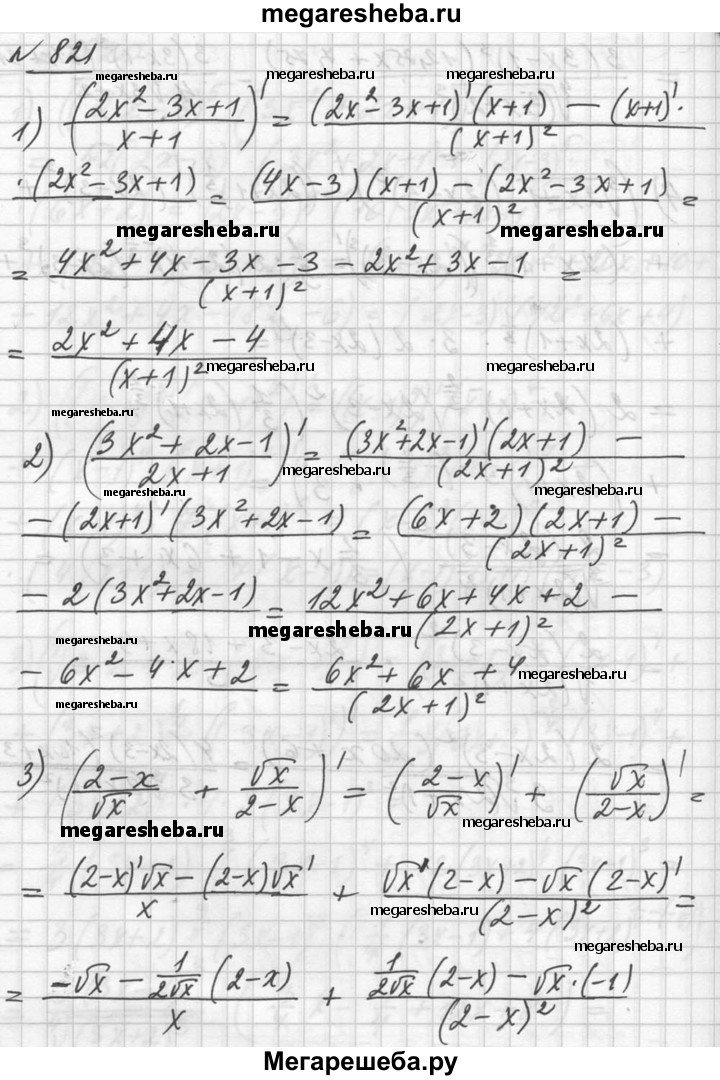 megaresheba.ru
№ 821
megaresheba.ru megaresheba.ru megaresheba.ru
1) ((2x² - 3x + 1)/(x + 1))' = ((2x² - 3x + 1)'(x + 1) - (x+1)'·
·(2x² - 3x + 1))/(x + 1)² = ((4x - 3)(x + 1) - (2x² - 3x + 1))/(x + 1)² =
megaresheba.ru megaresheba.ru
= (4x² + 4x - 3x - 3 - 2x² + 3x - 1)/(x + 1)² =
= (2x² + 4x - 4)/(x + 1)²
megaresheba.ru megaresheba.ru
megaresheba.ru
2) ((3x² + 2x - 1)/(2x + 1))' = ((3x² + 2x - 1)'(2x + 1) -
megaresheba.ru
megaresheba.ru megaresheba.ru
- (2x + 1)'(3x² + 2x - 1))/(2x + 1)² = ((6x + 2)(2x + 1) -
- 2(3x² + 2x - 1))/(2x + 1)² = (12x² + 6x + 4x + 2 -
megaresheba.ru megaresheba.ru
- 6x² - 4·x + 2)/(2x + 1)² = (6x² + 6x + 4)/(2x + 1)²
megaresheba.ru
megaresheba.ru
3) ((2 - x)/√x + √x/(2 - x))' = ((2 - x)/√x)' + (√x/(2 - x))' =
megaresheba.ru megaresheba.ru
= ((2 - x)'√x - (2 - x)√x')/x + (√x'(2 - x) - √x(2 - x)')/(2 - x)² =
megaresheba.ru
megaresheba.ru
= (-√x - 1/(2√x) (2 - x))/x + (1/(2√x) (2 - x) - √x·(-1))/(2 - x)²
Мегарешеба.ру